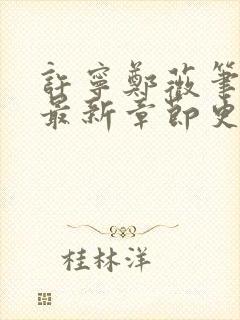 許寧鄭薇筆
最新章節史
桂林洋